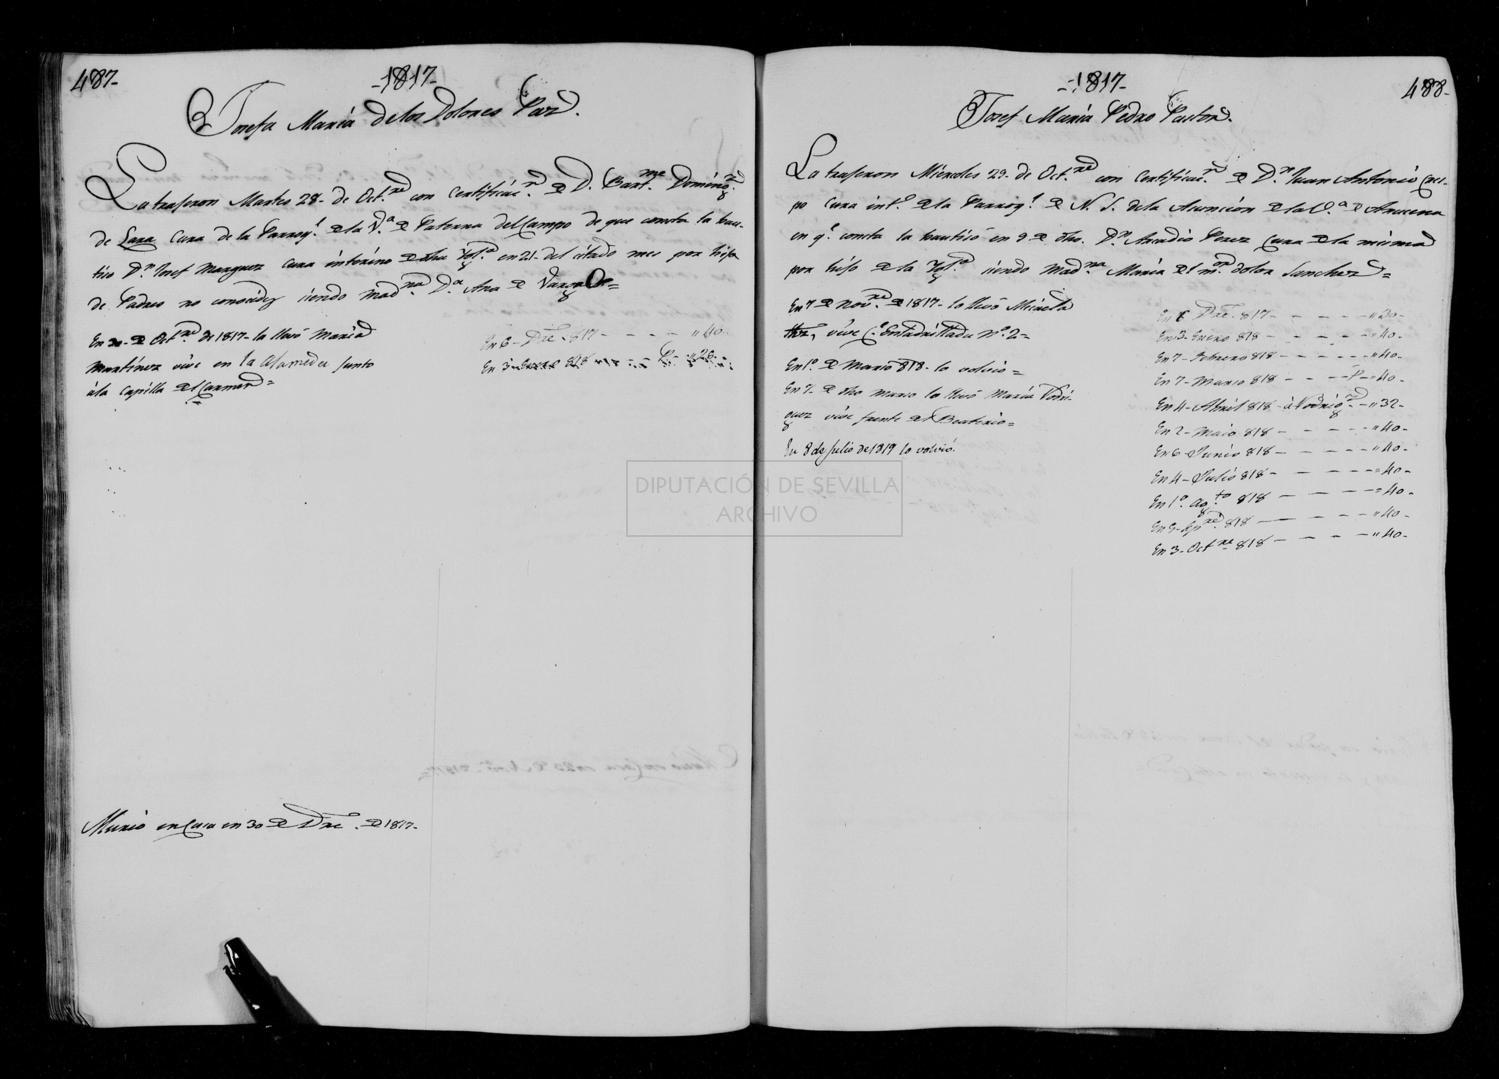 487-
-1817-
Josefa María de los Dolores Paz.
La trajeron Martes 28- de Oct.re con certificac.n de D. Bart.me Doming.z
de Lara Cura de la Parroq.l de la V.a de Paterna del Campo de que consta la bau-
tizó D.n Josef Marquez cura interino de dha Ygl.a en 21. del citado mes por hija
de Padres no conocidos siendo Mad.na D.a Ana de Vargas=
En 30- de Oct.re de 1817- la llevó Maria
Martinez vive en la Alameda junto
á la Capilla del Carmen=
En 6- Dre. 817- - - - - " 40-
En 3- Enero 818
Murio en Casa en 30 de Dre. de 1817-
-1817-
488-
Josef María Pedro Pastor.
La trajeron Miercoles 29- de Oct.re con certificac.n de D.n Juan Antonio Cres-
po cura int.o de la Parroq.l de N. S. de la Asuncion de la V.a de Aracena
en q.e consta lo bautizó en 9 de dho. D.n Arcadio Perez Cura de la misma
por hijo de la Ygl.a siendo Mad.na María del m.or dolor Sanchez=
En 7 de Nov.re de 1817- lo llevó Micaela
vive C. Enladrillada n.o 2-
En 1.o de Marzo 818- lo volvio=
En 7- de dho marzo lo llevó María Rodri-
guez vive frente del Beaterio=
En 8 de Julio de 1819 lo volvió.
Dre. 817- - - - - " 20-
En 3- Enero 818 - - - - - " 40-
En 7- Febrero 818 - - - - - " 40-
En 7- Marzo 818 - - - P- 40-
En 4- Abril 818- á Rodrig.z - " 32-
En 2- Maio 818 - - - - - " 40-
En 6- Junio 818 - - - - - " 40-
En 4- Julio 818 - - - - - " 40-
En 1.o Ag.to 818 - - - - " 40-
En 5- Sp.re 818 - - - - " 40-
En 3- Oct.re 818 - - - - " 40-
DIPUTACIÓN DE SEVILLA
ARCHIVO